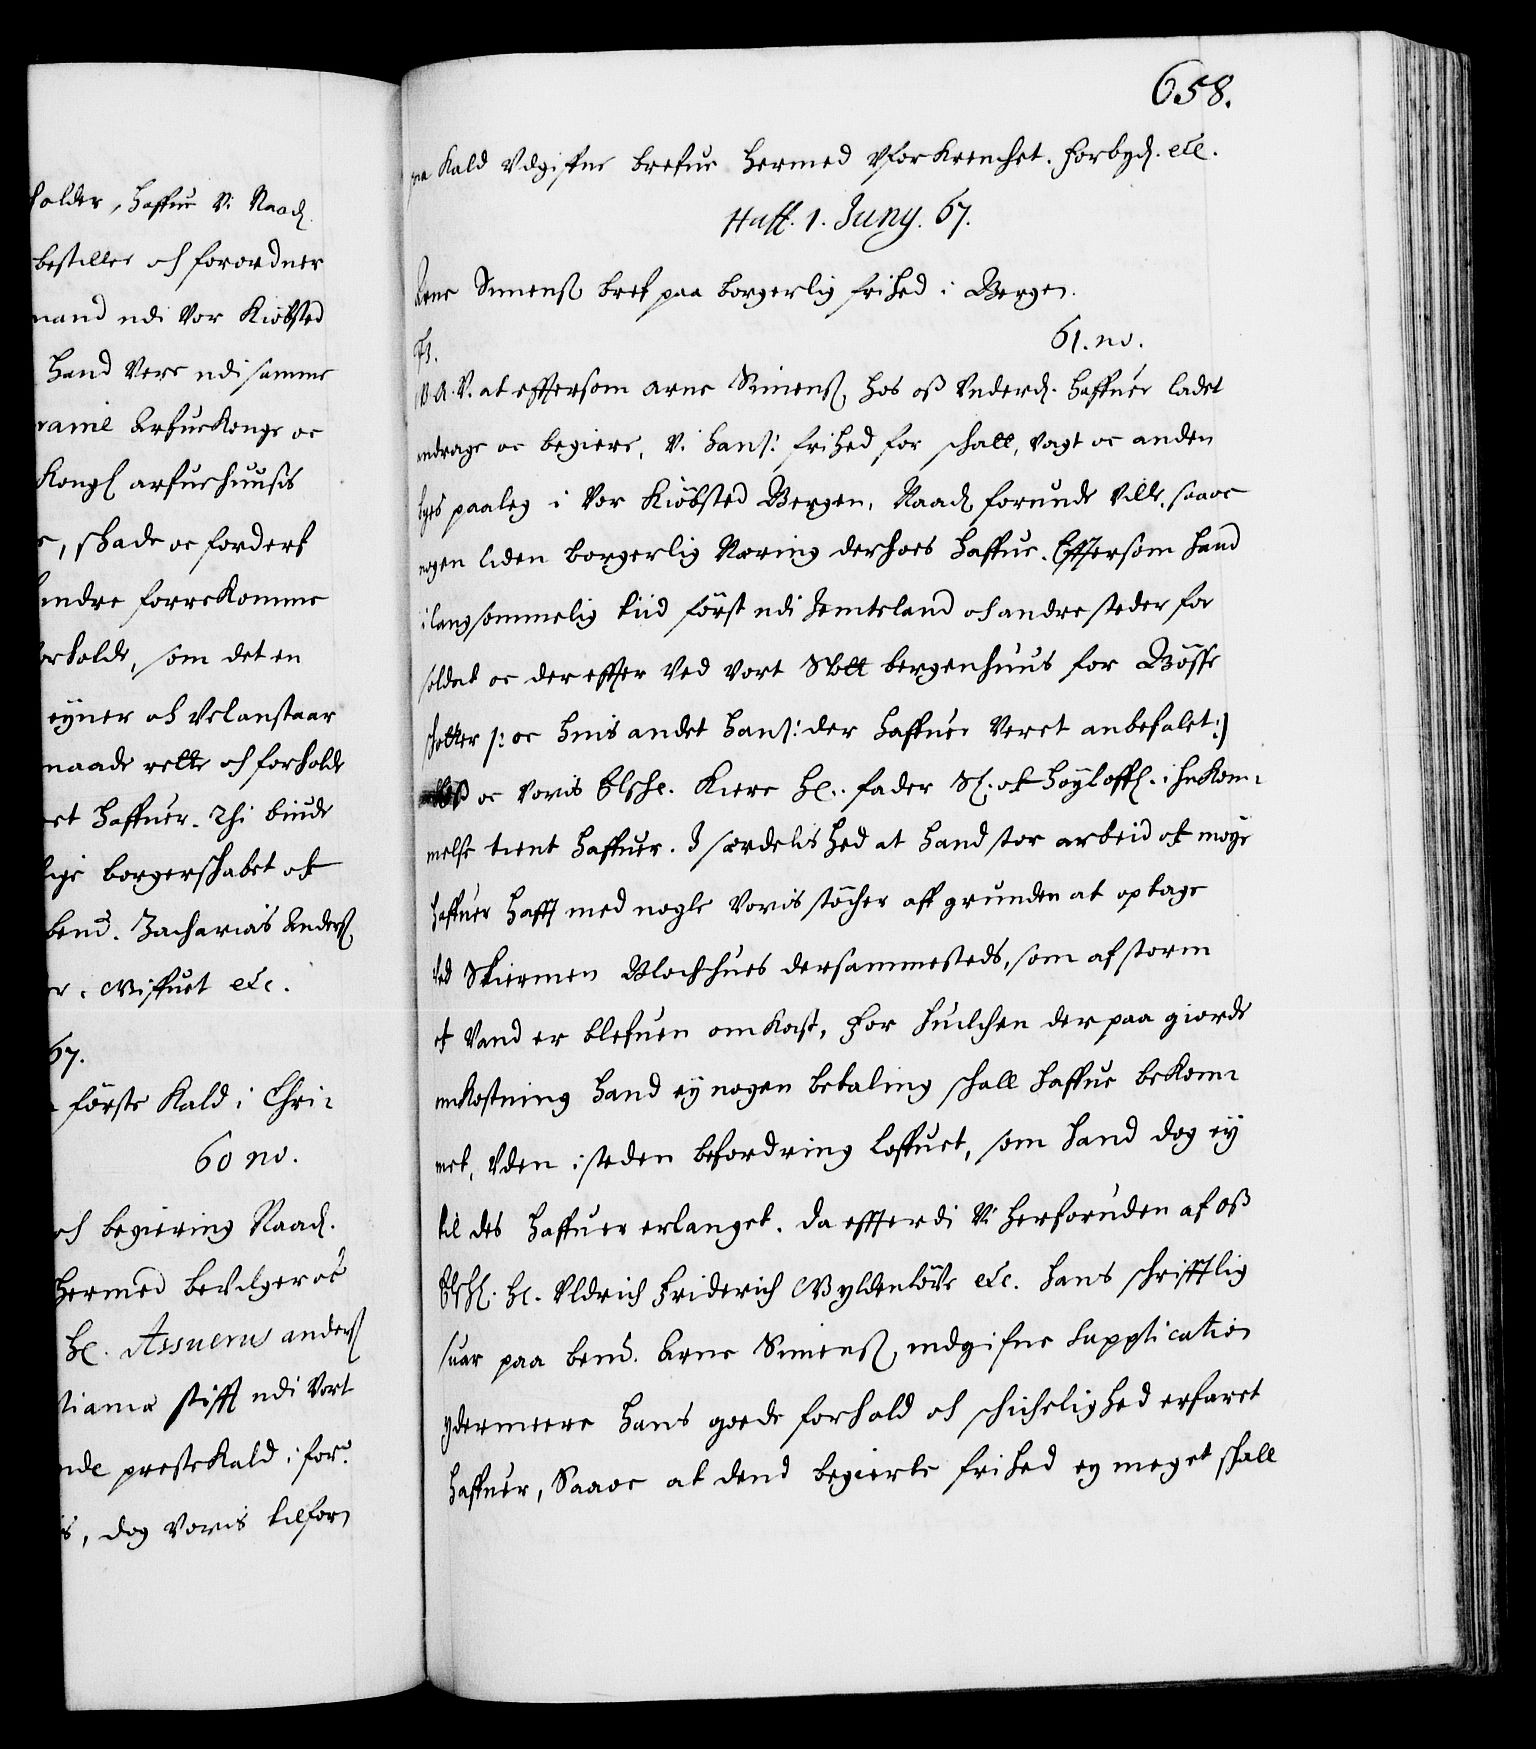 holder, haffue Vi Naad.
bestille och forordner
mand udi Vor Kiøbsted
hand Vere udi samme
Arfue Konge oc
Kongl arfuehuusis
, skade oc forderf
hindre forrekomme
forholde, som det en
eyner och Velanstaar
naade rette och forholde
et haffuer. Thi biude
lige borgerskabet och
bend. Zacharias Anders
Giffuet etc.
67.
første Kald i Chri-
60 no.
och begiering Naad.
hermed beVilger oc
Hr. Assuerus anders
stiania stifft udi Vort
preste Kald i for.
, dog Voris tilforn
658.
paa Kald Udgifne brefue hermed Uforkrenchet. forbyd. etc.
Haff. 1. Juny. 67.
Arne Simens bref paa borgerlig frihed i Bergen.
61. no.
F3.
V. A. V. at efftersom arne Simens, hos oss Underd. haffuer ladet
andrage oc begiere, Vi hans: frihed for schatt, Vagt oc anden
byes paaleg i Vor Kiøbsted Bergen, Naad. forunde Ville, saa oc
nogen liden borgerlig Næring derhoes haffue. Efftersom hand
i langsommelig tiid først udi Jemteland och andre steder for
soldat oc dereffter Ved Vort Slott bergenhuus for Bøsse
schøtter /: oc huis andet hans: der haffuer Veret anbefalet :/
oss oc Voris Elsche. Kiere Hr. fader Sl. och høyloffl. ihukom-
melse tient haffuer. I særdelished at hand stor arbeid och møye
haffuer hafft med nogle Voris støcher aff grunden at optage
Ved Skiermen Blochhues dersammesteds, som af storm
och Vand er blefuen omkast, for huilchen der paa giorde
umkostning hand ey nogen betaling schall haffue bekom-
met, Uden isteden befordring loffuet, som hand dog ey
til des haffuer erlanget. Da effterdi Vi herforuden af oss
Elschl. Hr. Uldrich Friderich Gyldenløve etc. hans schrifftlig
suar paa bend. Arne Simens, indgifne supplication
ydermeere hans goede forhold och schichelighed erfaret
haffuer, Saa oc at dend begierte frihed ey meget schall